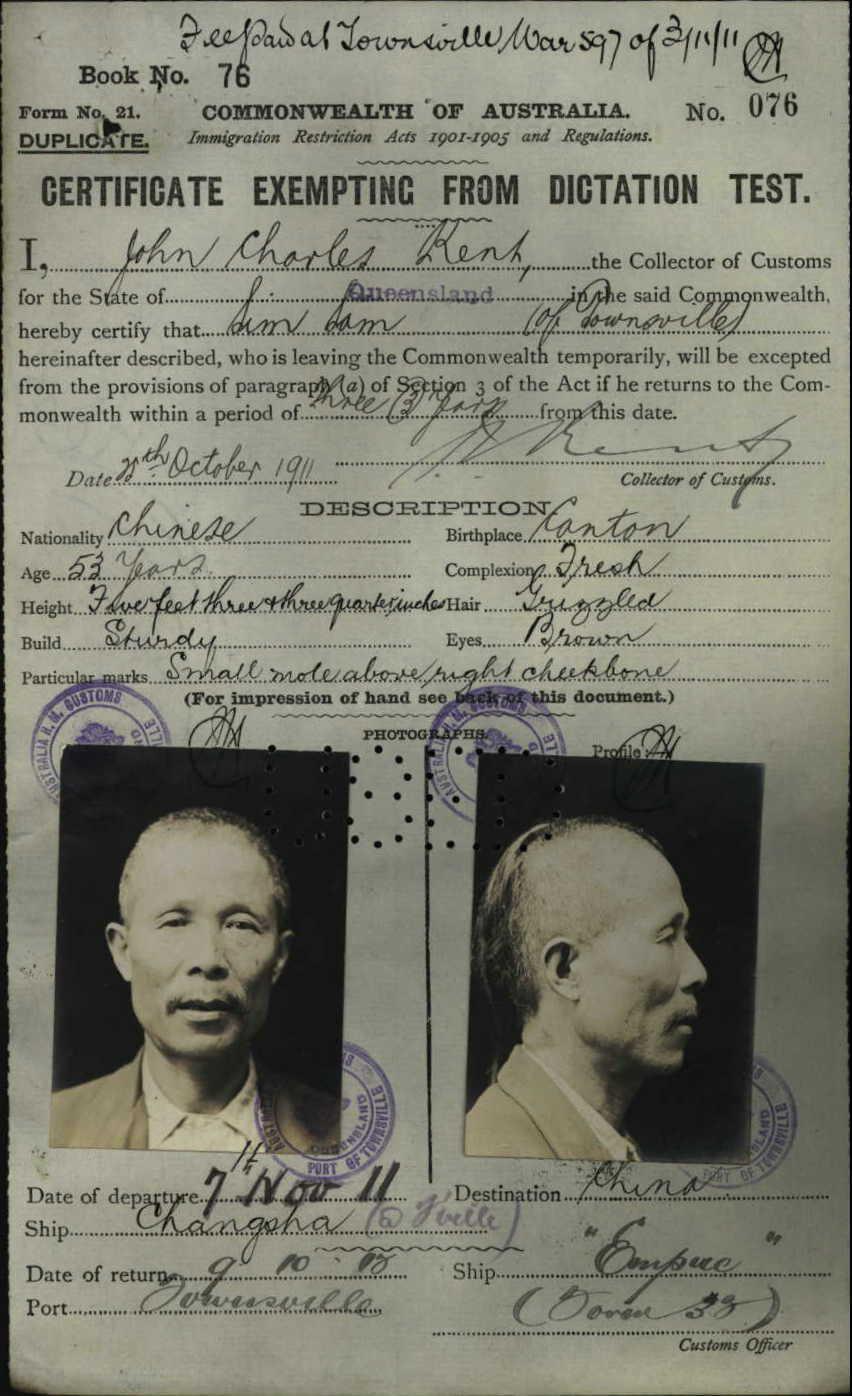 Fee paid at Townsville War 597 of 3/11/11
Book No. 76
Form No. 21. COMMONWEALTH OF AUSTRALIA. No. 076
DUPLICATE. Immigration Restriction Acts 1901-1905 and Regulations.
CERTIFICATE EXEMPTING FROM DICTATION TEST.
I, John Charles Kent, the Collector of Customs
for the State of Queensland in the said Commonwealth,
hereby certify that Sam (of Townsville)
hereinafter described, who is leaving the Commonwealth temporarily, will be excepted
from the provisions of paragraph (a) of Section 3 of the Act if he returns to the Com-
monwealth within a period of three (3) Years from this date.
Date October 1911 Kent
Collector of Customs.
DESCRIPTION.
Nationality Chinese Birthplace Canton
Age 53 Years Complexion Fresh
Height Five feet three & three quarter inches Hair Grizzled
Build Sturdy Eyes Brown
Particular marks Small mole above right cheekbone
(For impression of hand see back of this document.)
PHOTOGRAPHS.
Profile
AUSTRALIA H.M. CUSTOMS
AUSTRALIA H.M. CUSTOMS
QUEENSLAND
PORT OF TOWNSVILLE
PORT OF TOWNSVILLE
Date of departure 7th Nov 11 Destination China
Ship Changsha (@ T'ville)
Date of return 9 10 Ship "Empire"
Port Townsville
Customs Officer